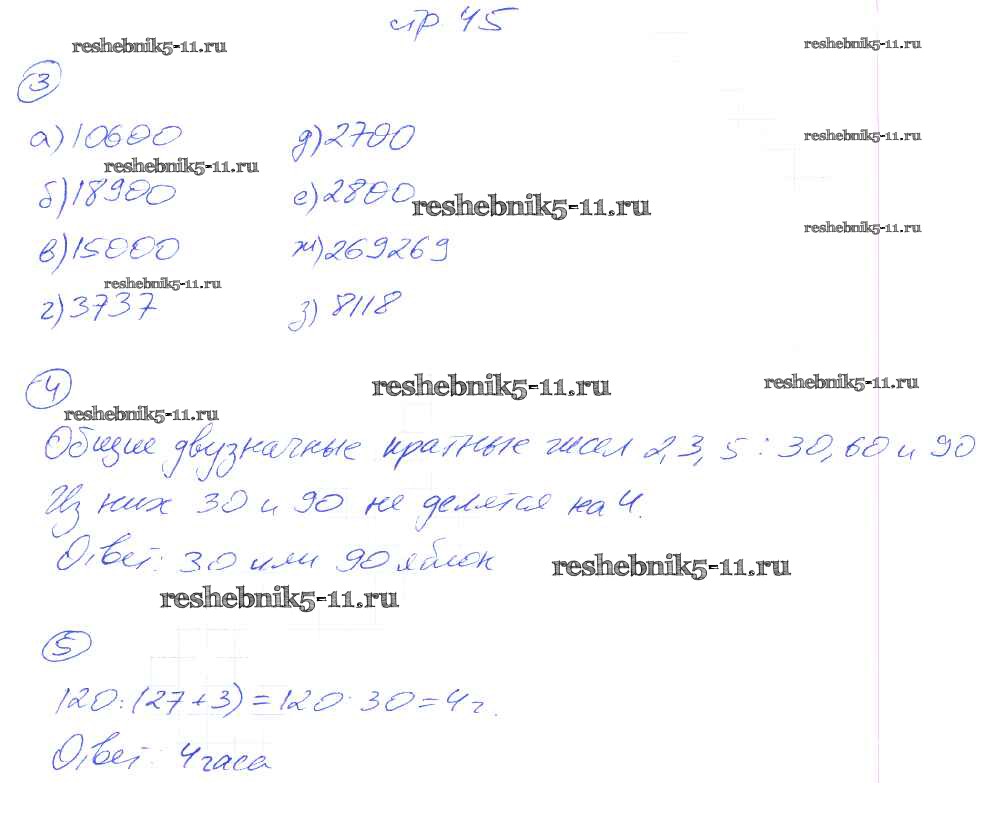 стр 45
reshebnik5-11.ru
reshebnik5-11.ru
3
а) 10600 д) 2700
reshebnik5-11.ru
reshebnik5-11.ru
б) 18900 е) 2800
reshebnik5-11.ru
reshebnik5-11.ru
в) 15000 ж) 269269
reshebnik5-11.ru
г) 3737 з) 8118
4
reshebnik5-11.ru
reshebnik5-11.ru
reshebnik5-11.ru
Общие двузначные кратные чисел 2, 3, 5 : 30, 60 и 90
Из них 30 и 90 не делятся на 4.
Ответ: 30 или 90 яблок
reshebnik5-11.ru
reshebnik5-11.ru
5
120:(27+3)=120·30=4 г.
Ответ: 4 часа